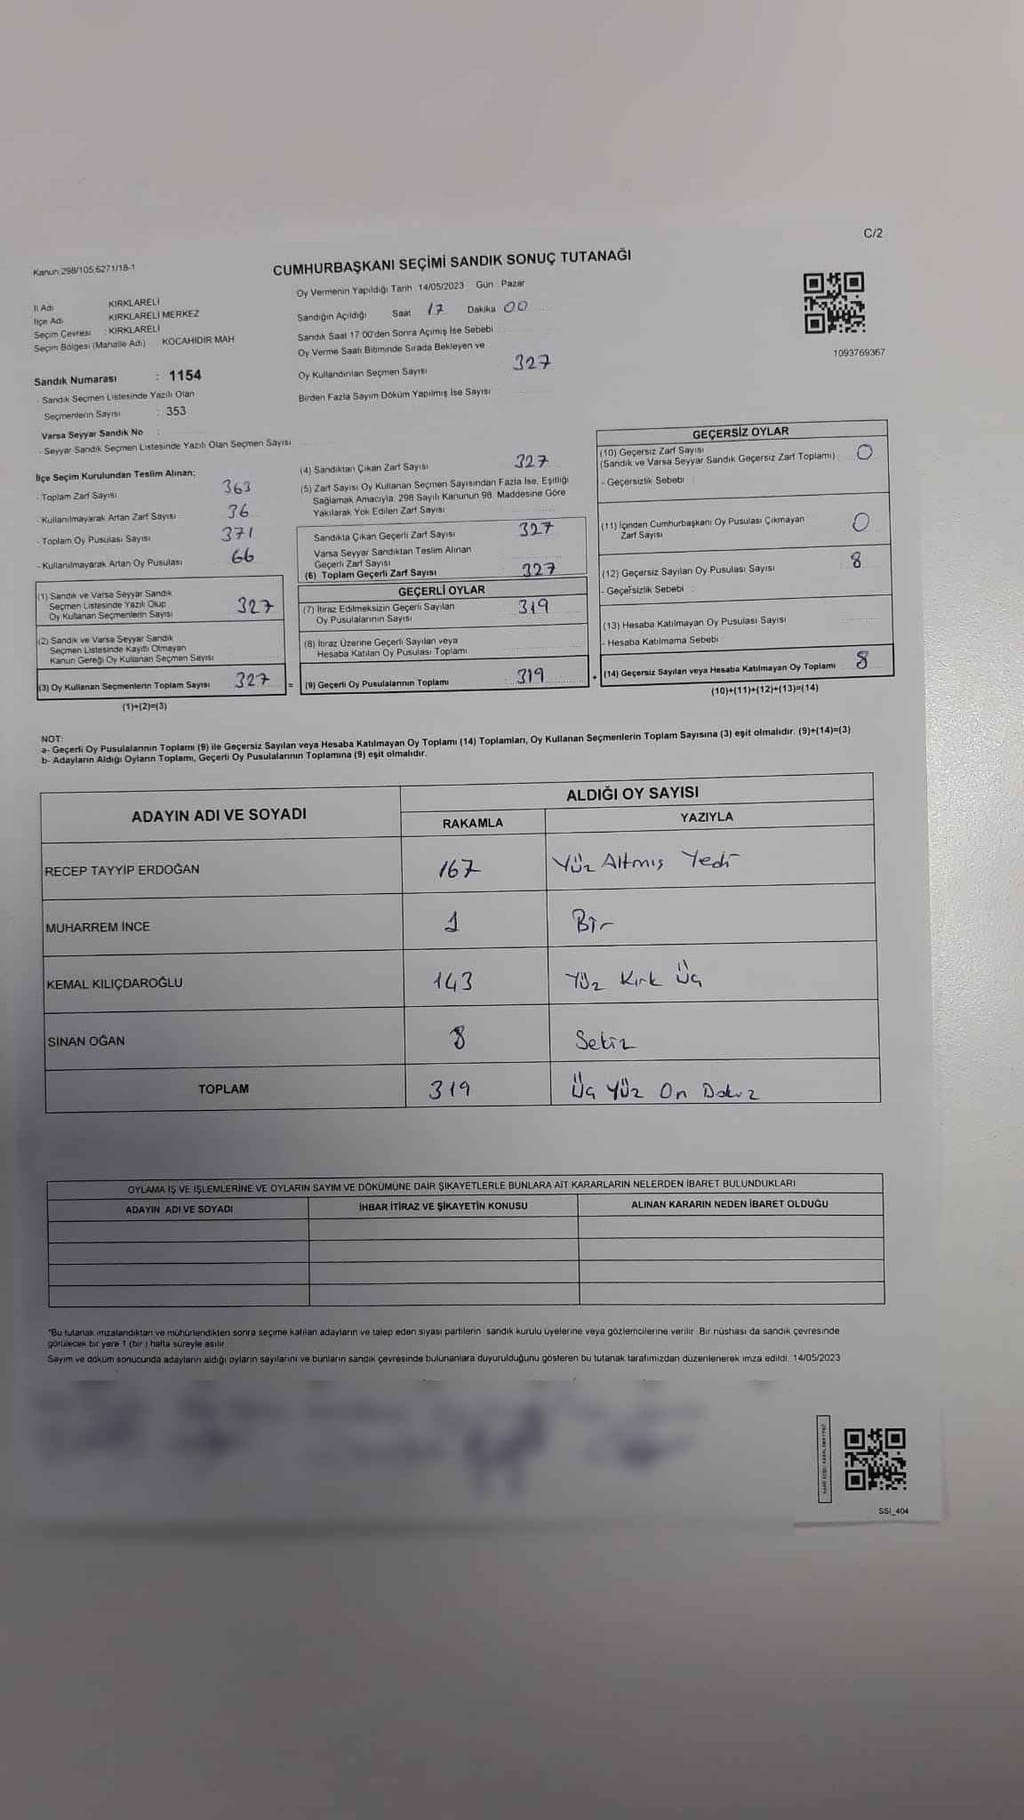 C/2
Kanun:298/105,6271/18-1
CUMHURBAŞKANI SEÇİMİ SANDIK SONUÇ TUTANAĞI
İl Adı KIRKLARELİ
İlçe Adı KIRKLARELİ MERKEZ
Seçim Çevresi : KIRKLARELİ
Seçim Bölgesi (Mahalle Adı) KOCAHIDIR MAH
Sandık Numarası : 1154
- Sandık Seçmen Listesinde Yazılı Olan
Seçmenlerin Sayısı : 353
Varsa Seyyar Sandık No :
- Seyyar Sandık Seçmen Listesinde Yazılı Olan Seçmen Sayısı
Oy Vermenin Yapıldığı Tarih 14/05/2023 Gün Pazar
Sandığın Açıldığı Saat 17 Dakika 00
Sandık Saat 17:00'den Sonra Açılmış İse Sebebi
Oy Verme Saati Bitiminde Sırada Bekleyen ve
Oy Kullandırılan Seçmen Sayısı 327
Birden Fazla Sayım Döküm Yapılmış İse Sayısı
1093769367
İlçe Seçim Kurulundan Teslim Alınan:
- Toplam Zarf Sayısı 363
- Kullanılmayarak Artan Zarf Sayısı 36
- Toplam Oy Pusulası Sayısı 371
- Kullanılmayarak Artan Oy Pusulası 66
(1) Sandık ve Varsa Seyyar Sandık
Seçmen Listesinde Yazılı Olup
Oy Kullanan Seçmenlerin Sayısı 327
(2) Sandık ve Varsa Seyyar Sandık
Seçmen Listesinde Kayıtlı Olmayan
Kanun Gereği Oy Kullanan Seçmen Sayısı
(3) Oy Kullanan Seçmenlerin Toplam Sayısı 327
(1)+(2)=(3)
(4) Sandıktan Çıkan Zarf Sayısı 327
(5) Zarf Sayısı Oy Kullanan Seçmen Sayısından Fazla İse, Eşitliği
Sağlamak Amacıyla, 298 Sayılı Kanunun 98. Maddesine Göre
Yakılarak Yok Edilen Zarf Sayısı
Sandıkta Çıkan Geçerli Zarf Sayısı 327
Varsa Seyyar Sandıktan Teslim Alınan
Geçerli Zarf Sayısı
(6) Toplam Geçerli Zarf Sayısı 327
GEÇERLİ OYLAR
(7) İtiraz Edilmeksizin Geçerli Sayılan
Oy Pusulalarının Sayısı 319
(8) İtiraz Üzerine Geçerli Sayılan veya
Hesaba Katılan Oy Pusulası Toplamı
= (9) Geçerli Oy Pusulalarının Toplamı 319
GEÇERSİZ OYLAR
(10) Geçersiz Zarf Sayısı
(Sandık ve Varsa Seyyar Sandık Geçersiz Zarf Toplamı) 0
- Geçersizlik Sebebi
(11) İçinden Cumhurbaşkanı Oy Pusulası Çıkmayan
Zarf Sayısı 0
(12) Geçersiz Sayılan Oy Pusulası Sayısı 8
- Geçersizlik Sebebi :
(13) Hesaba Katılmayan Oy Pusulası Sayısı
- Hesaba Katılmama Sebebi
+ (14) Geçersiz Sayılan veya Hesaba Katılmayan Oy Toplamı 8
(10)+(11)+(12)+(13)=(14)
NOT:
a- Geçerli Oy Pusulalarının Toplamı (9) ile Geçersiz Sayılan veya Hesaba Katılmayan Oy Toplamı (14) Toplamları, Oy Kullanan Seçmenlerin Toplam Sayısına (3) eşit olmalıdır. (9)+(14)=(3)
b- Adayların Aldığı Oyların Toplamı, Geçerli Oy Pusulalarının Toplamına (9) eşit olmalıdır.
ADAYIN ADI VE SOYADI ALDIĞI OY SAYISI
RAKAMLA YAZIYLA
RECEP TAYYİP ERDOĞAN 167 Yüz Altmış Yedi
MUHARREM İNCE 1 Bir
KEMAL KILIÇDAROĞLU 143 Yüz Kırk Üç
SİNAN OĞAN 8 Sekiz
TOPLAM 319 Üç Yüz On Dokuz
OYLAMA İŞ VE İŞLEMLERİNE VE OYLARIN SAYIM VE DÖKÜMÜNE DAİR ŞİKAYETLERLE BUNLARA AİT KARARLARIN NELERDEN İBARET BULUNDUKLARI
ADAYIN ADI VE SOYADI İHBAR İTİRAZ VE ŞİKAYETİN KONUSU ALINAN KARARIN NEDEN İBARET OLDUĞU
*Bu tutanak imzalandıktan ve mühürlendikten sonra seçime katılan adayların ve talep eden siyasi partilerin sandık kurulu üyelerine veya gözlemcilerine verilir. Bir nüshası da sandık çevresinde
görülecek bir yere 1 (bir ) hafta süreyle asılır.
Sayım ve döküm sonucunda adayların aldığı oyların sayılarını ve bunların sandık çevresinde bulunanlara duyurulduğunu gösteren bu tutanak tarafımızdan düzenlenerek imza edildi. 14/05/2023
SSI_404